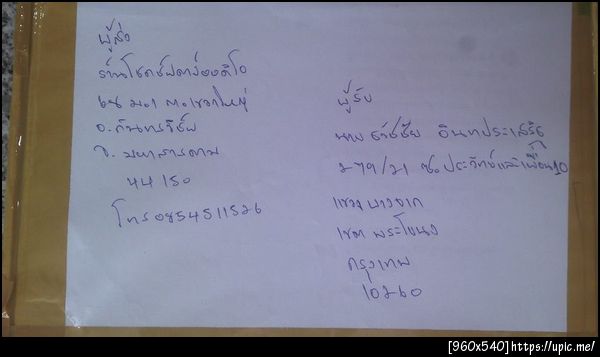 ผู้ส่ง
ร้านโชคชัย
ม.1 ต.เขวาใหญ่
อ.กันทรวิชัย
จ. มหาสารคาม
44150
โทร 0854511526
ผู้รับ
นาย ธวัชชัย อินทประเสริฐ
279/21 ซ. ประวิทย์และเพื่อน 10
แขวง บางจาก
เขต พระโขนง
กรุงเทพ
10260
[960x540] https://upic.me/